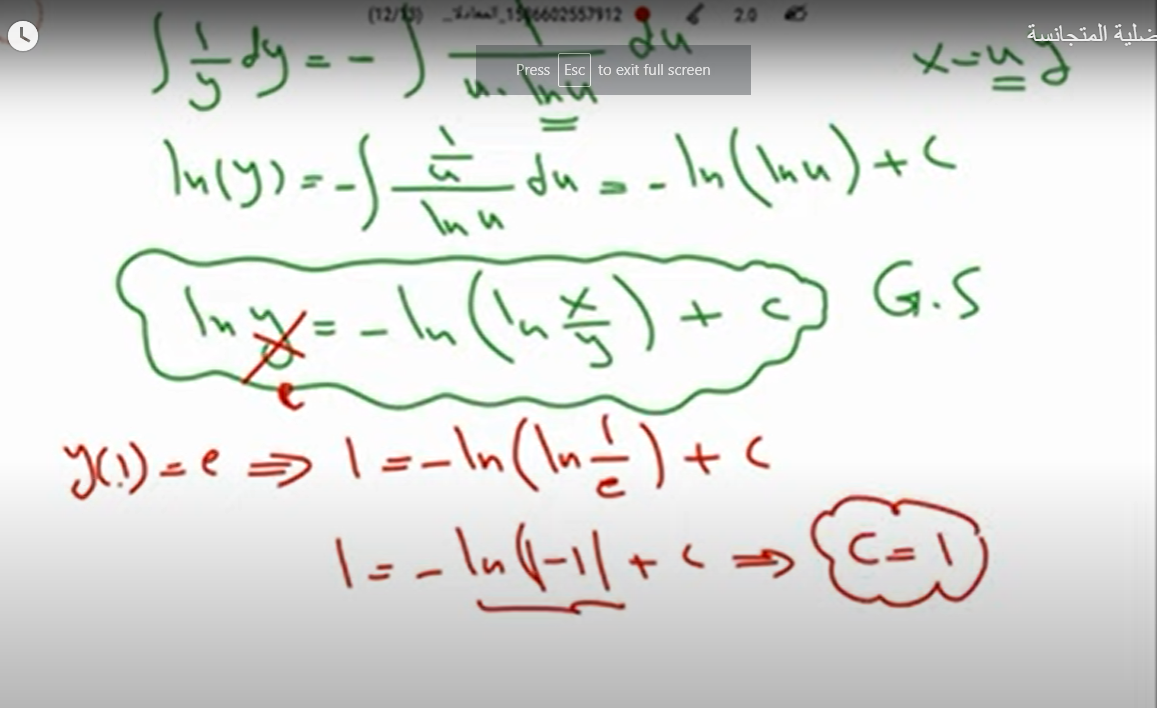 (12/13) 1586602557912_المعادلا... 2.0
ضلية المتجانسة
Press Esc to exit full screen
∫ 1/y dy = - ∫ 1/(u . ln u) du    x = u y
ln(y) = - ∫ (1/u)/(ln u) du = - ln(ln u) + c
ln y = - ln(ln x/y) + c    G.S
e
y(1) = e ⇒ 1 = - ln(ln 1/e) + c
1 = - ln|-1| + c ⇒ c = 1